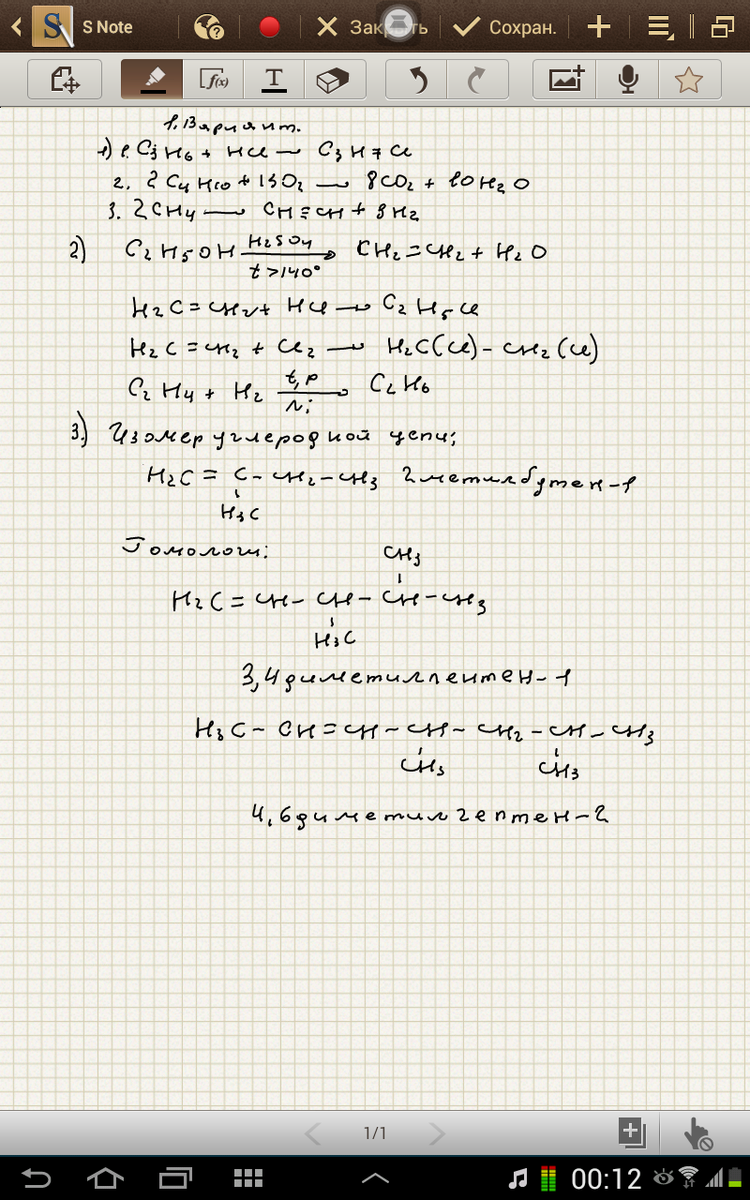 S Note
Закрыть
Сохран.
f(x)
T
1. Вариант.
1) 1. C3H6 + HCl — C3H7Cl
2. 2C4H10 + 13O2 → 8CO2 + 10H2O
3. 2CH4 → CH≡CH + 3H2
2) C2H5OH H2SO4 t>140° → CH2=CH2 + H2O
H2C=CH2 + HCl → C2H5Cl
H2C=CH2 + Cl2 → H2C(Cl)-CH2(Cl)
C2H4 + H2 t,p Ni → C2H6
3.) Изомер углеродной цепи;
H2C = C-CH2-CH3 2метилбутен-1
H3C
Гомологи:
CH3
H2C=CH-CH-CH-CH3
H3C
3,4диметилпентен-1
H3C-CH=CH-CH-CH2-CH-CH3
CH3 CH3
4,6диметилгептен-2
1/1
00:12